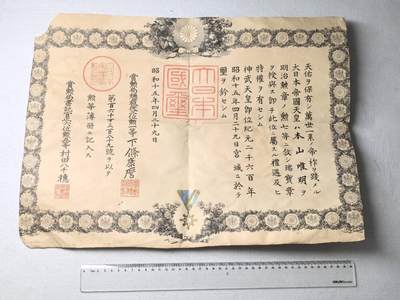 天佑ヲ保有シ萬世一系ノ帝祚ヲ踐メル
大日本帝國天皇ハ本山唯明ヲ
明治勲章ノ勲七等ニ敍シ瑞寶章
ヲ授與ス即チ此位ニ屬スル禮遇及ヒ
特權ヲ有セシム
神武天皇即位紀元二千六百年
昭和十五年四月二十九日宮城ニ於テ
璽ヲ鈐セシム
大日本
國璽
昭和十五年四月二十九日
賞勲局總裁 勲一等下條康麿
號ヲ以テ
勲等簿册ニ記入ス
賞勲局書記官 村田八千穂